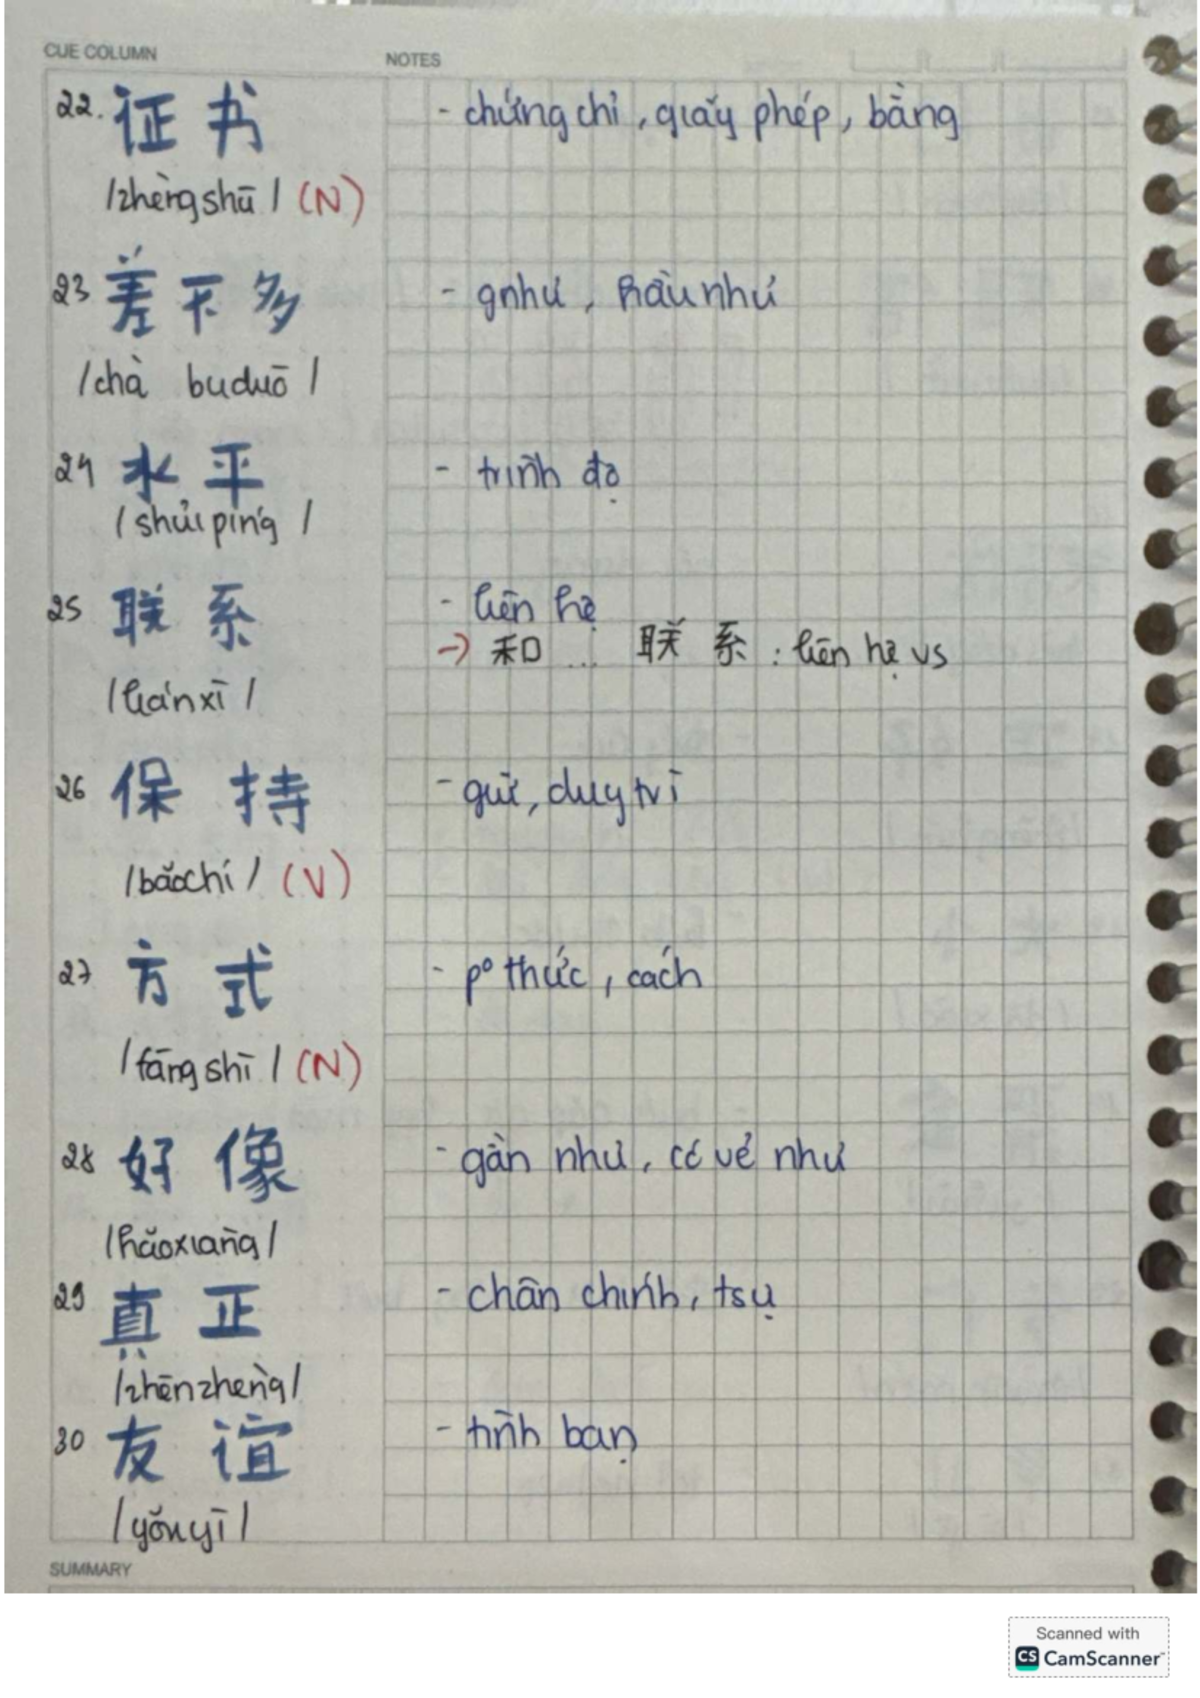 CUE COLUMN NOTES
22. 证书 - chứng chỉ, giấy phép, bằng
/zhèngshū/ (N)
23 差不多 - gnhư, hầu như
/chà buduō/
24 水平 - trình độ
/shuǐpíng/
25 联系 - liên hệ
→ 和 ... 联系: liên hệ vs
/liánxì/
26 保持 - giữ, duy trì
/bǎochí/ (V)
27 方式 - pº thức, cách
/fāngshì/ (N)
28 好像 - gần như, có vẻ như
/hǎoxiàng/
29 真正 - chân chính, tsự
/zhēnzhèng/
30 友谊 - tình bạn
/yǒuyì/
SUMMARY
Scanned with
CS CamScanner